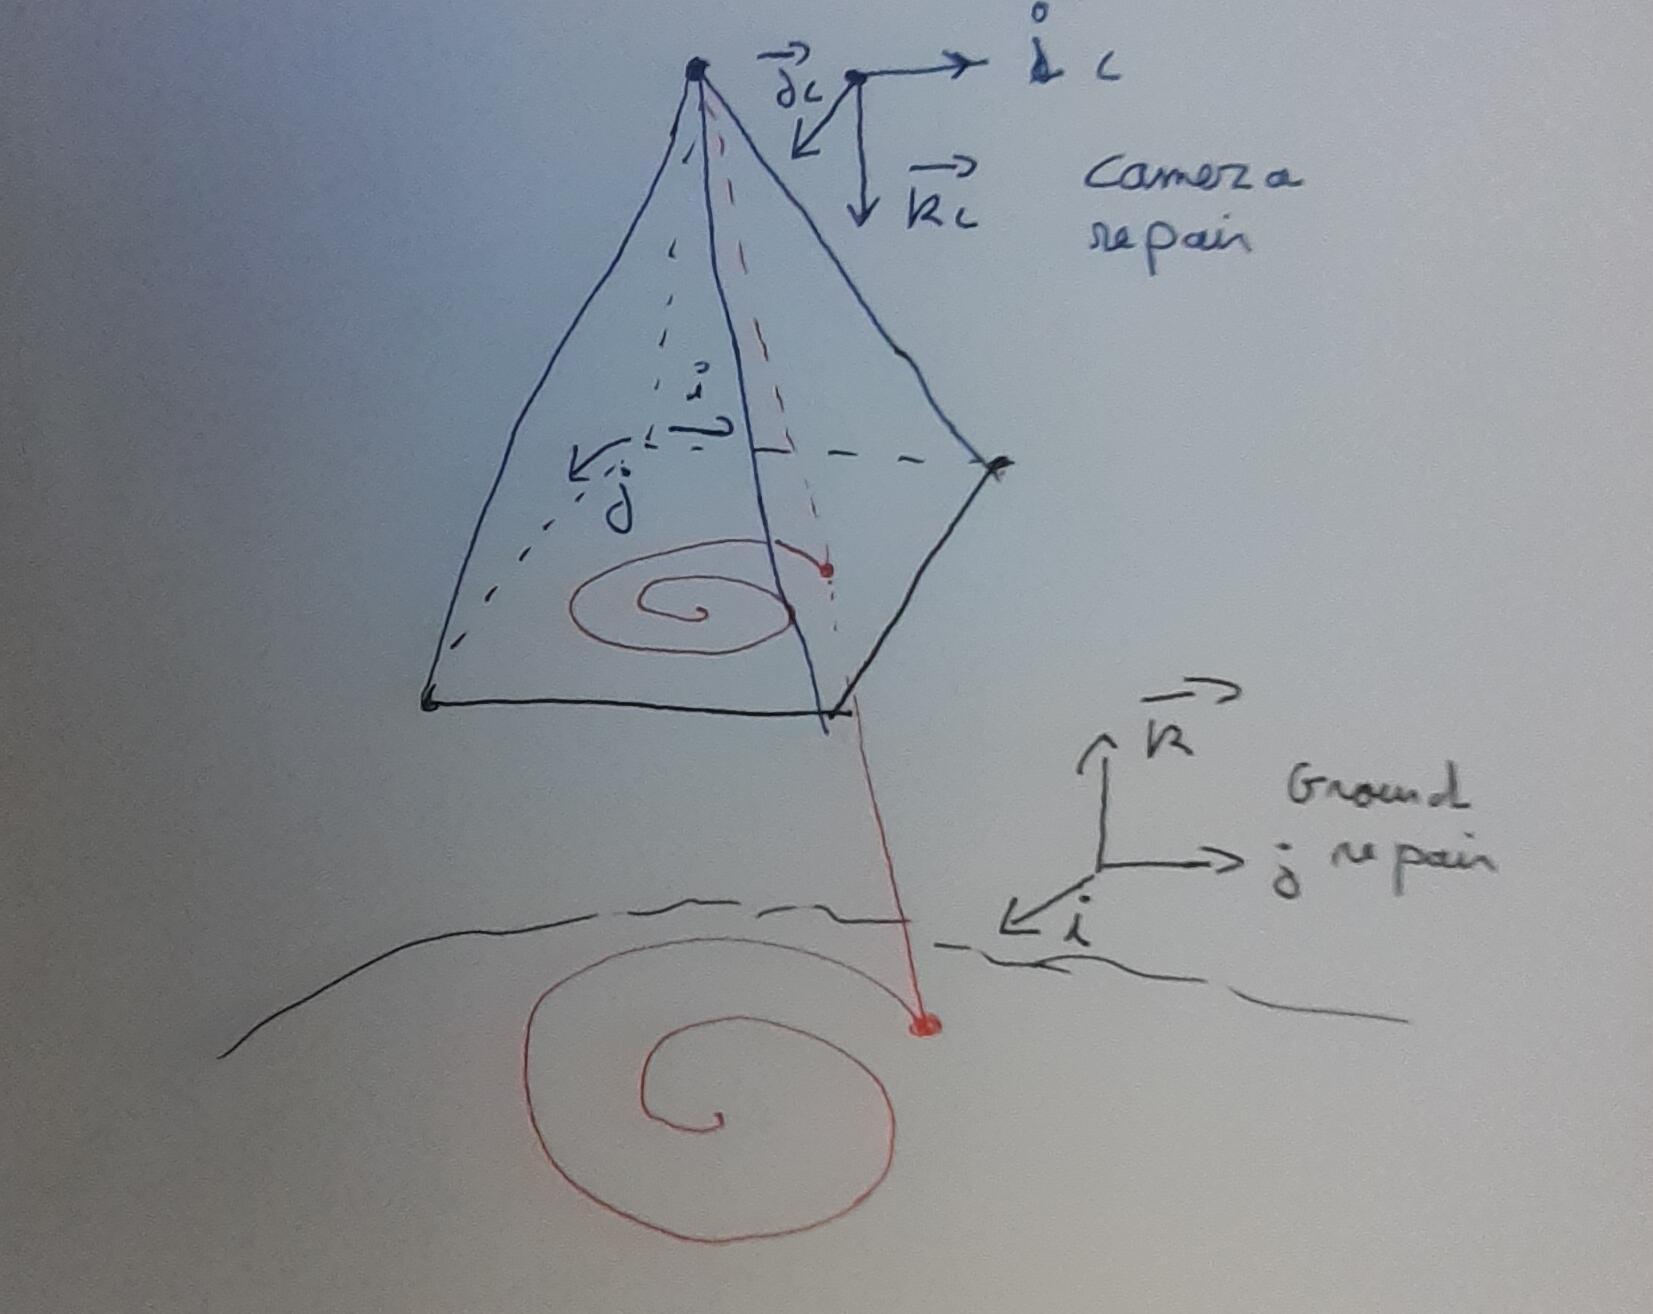 i c
jc
kc
Camera
repair
i
j
k
Ground
j repair
i